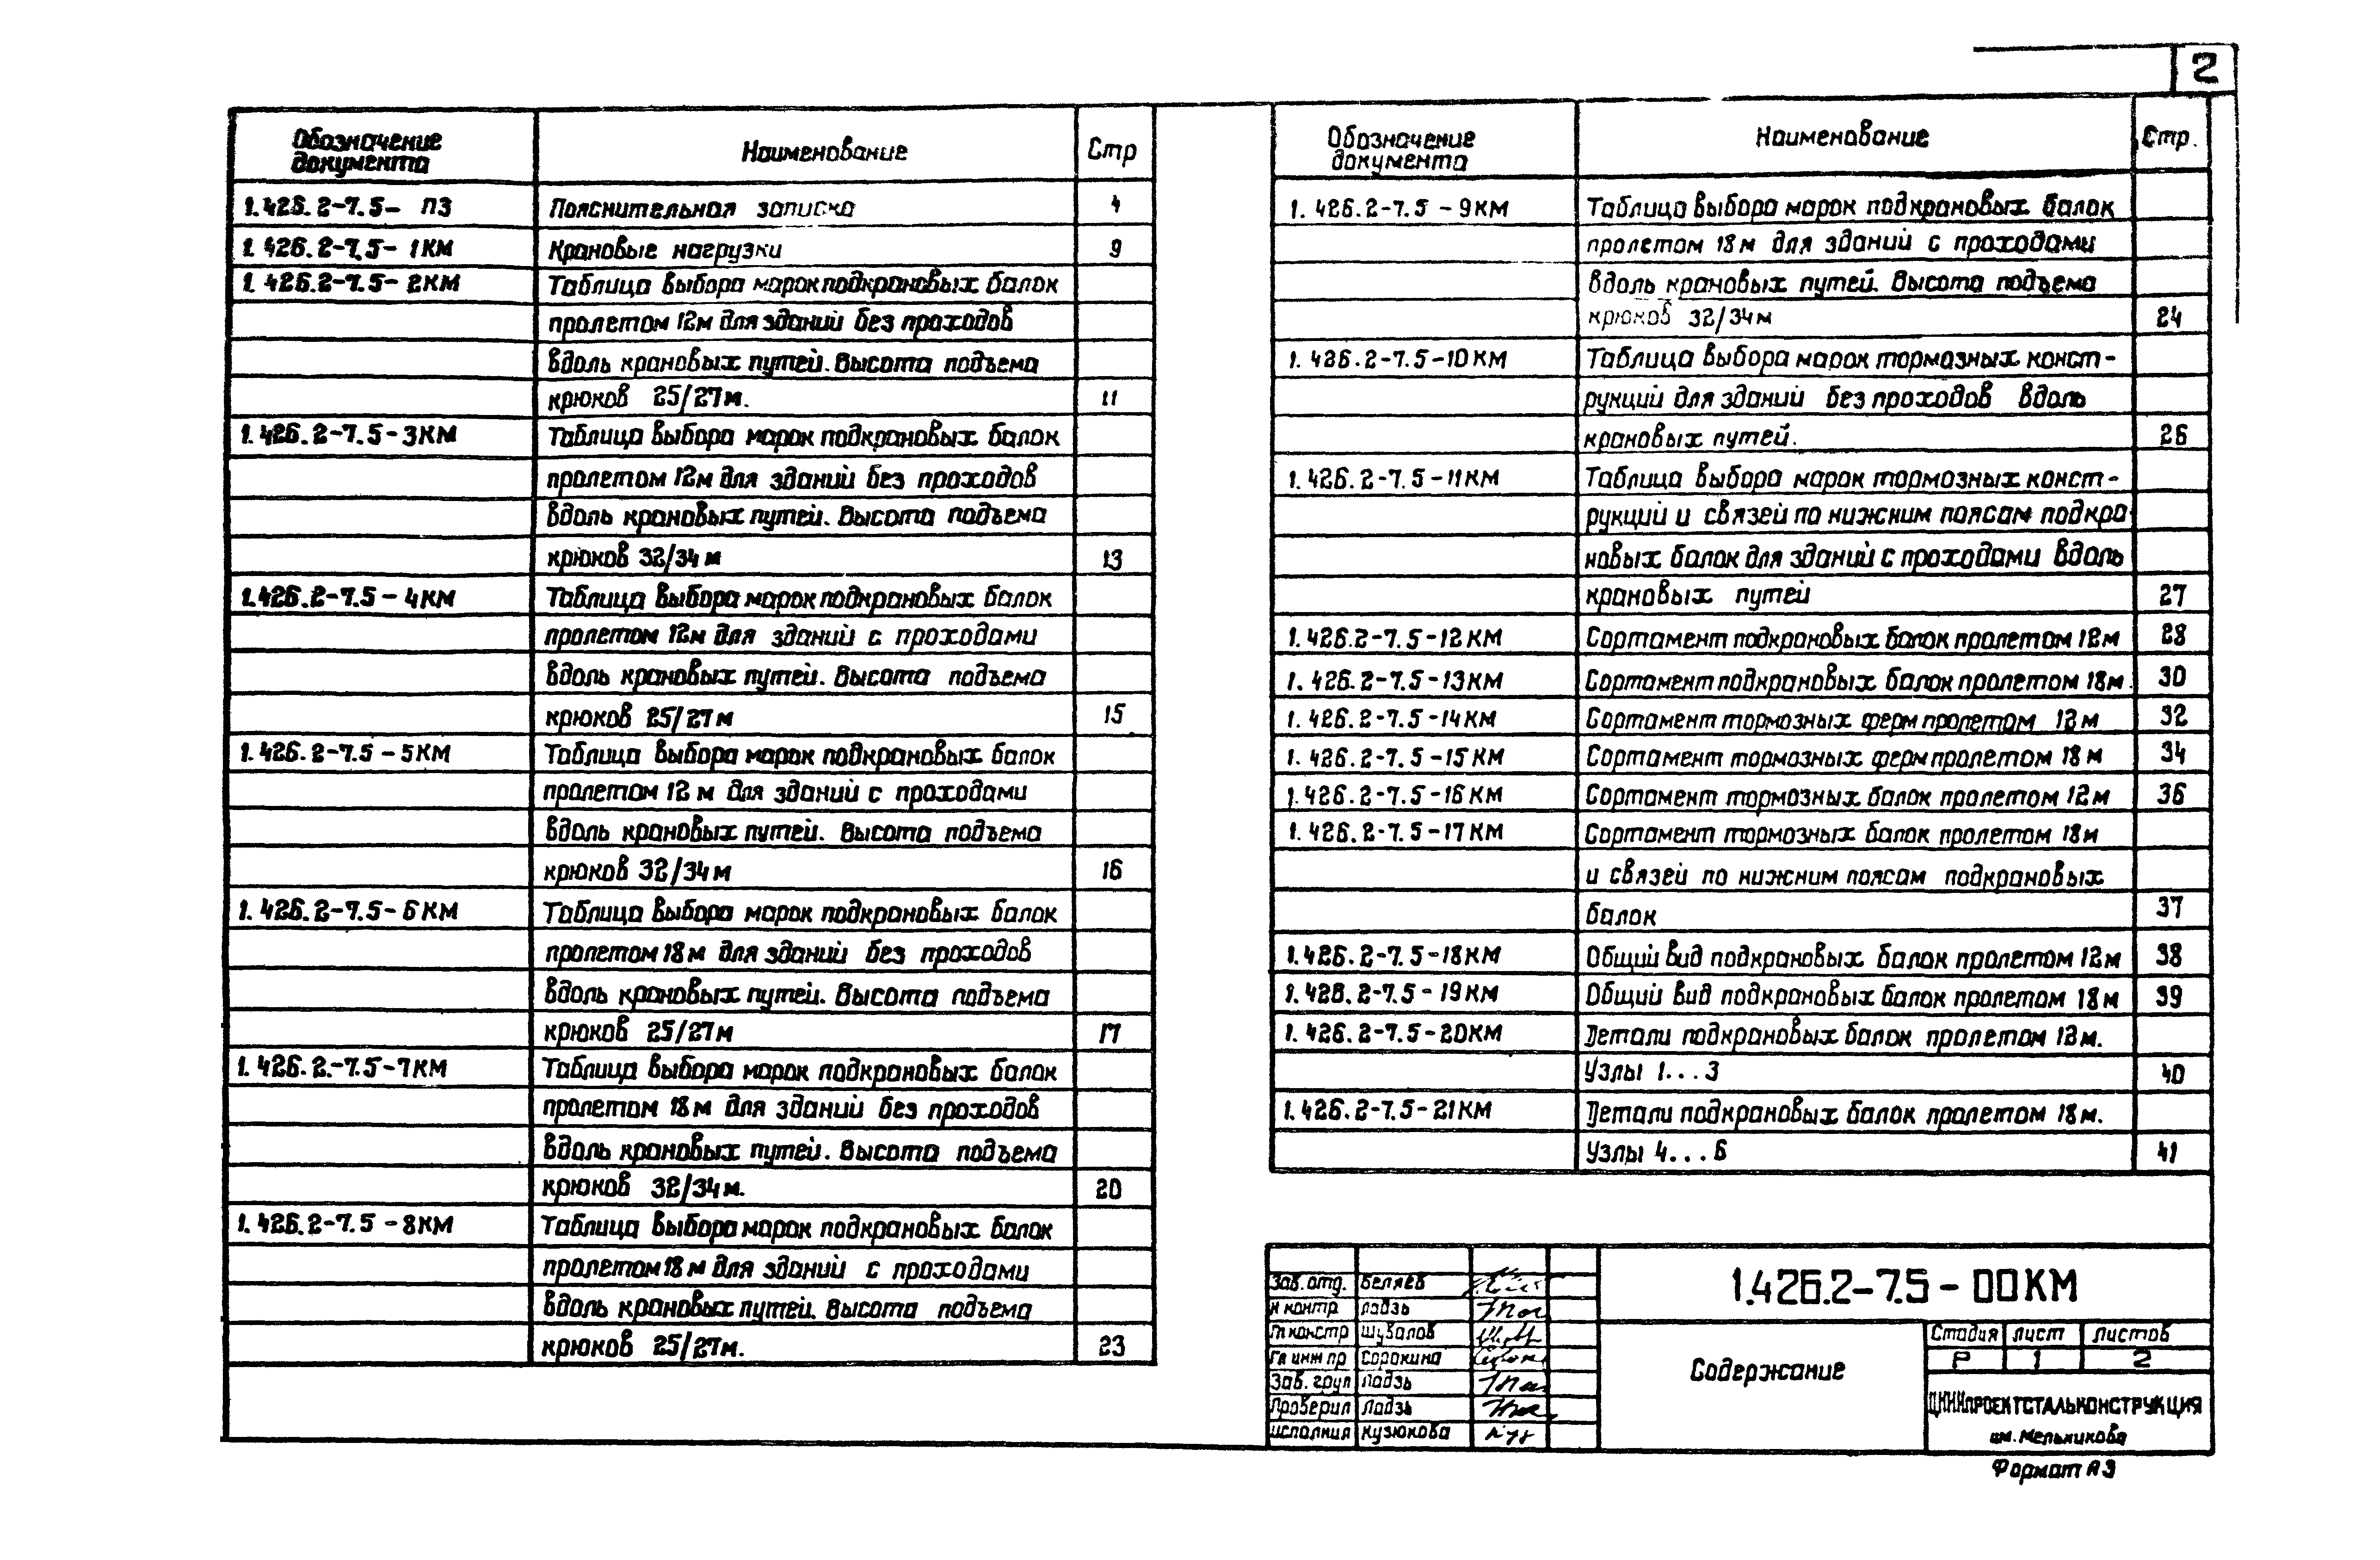 2
Обозначение документа Наименование Стр
1.426.2-7.5- ПЗ Пояснительная записка 4
1.426.2-7.5- 1КМ Крановые нагрузки 9
1.426.2-7.5- 2КМ Таблица выбора марок подкрановых балок
пролетом 12м для зданий без проходов
вдоль крановых путей. Высота подъема
крюков 25/27м. 11
1.426.2-7.5-3КМ Таблица выбора марок подкрановых балок
пролетом 12м для зданий без проходов
вдоль крановых путей. Высота подъема
крюков 32/34м 13
1.426.2-7.5-4КМ Таблица выбора марок подкрановых балок
пролетом 12м для зданий с проходами
вдоль крановых путей. Высота подъема
крюков 25/27м 15
1.426.2-7.5-5КМ Таблица выбора марок подкрановых балок
пролетом 12 м для зданий с проходами
вдоль крановых путей. Высота подъема
крюков 32/34м 16
1.426.2-7.5-6КМ Таблица выбора марок подкрановых балок
пролетом 18м для зданий без проходов
вдоль крановых путей. Высота подъема
крюков 25/27м 17
1.426.2.-7.5-7КМ Таблица выбора марок подкрановых балок
пролетом 18м для зданий без проходов
вдоль крановых путей. Высота подъема
крюков 32/34м. 20
1.426.2-7.5-8КМ Таблица выбора марок подкрановых балок
пролетом 18м для зданий с проходами
вдоль крановых путей. Высота подъема
крюков 25/27м. 23
Обозначение документа Наименование Стр.
1.426.2-7.5-9КМ Таблица выбора марок подкрановых балок
пролетом 18м для зданий с проходами
вдоль крановых путей. Высота подъема
крюков 32/34м 24
1.426.2-7.5-10КМ Таблица выбора марок тормозных конст-
рукций для зданий без проходов вдоль
крановых путей. 26
1.426.2-7.5-11КМ Таблица выбора марок тормозных конст-
рукций и связей по нижним поясам подкра-
новых балок для зданий с проходами вдоль
крановых путей 27
1.426.2-7.5-12КМ Сортамент подкрановых балок пролетом 12м 28
1.426.2-7.5-13КМ Сортамент подкрановых балок пролетом 18м. 30
1.426.2-7.5-14КМ Сортамент тормозных ферм пролетом 12м 32
1.426.2-7.5-15КМ Сортамент тормозных ферм пролетом 18м 34
1.426.2-7.5-16КМ Сортамент тормозных балок пролетом 12м 36
1.426.2-7.5-17КМ Сортамент тормозных балок пролетом 18м
и связей по нижним поясам подкрановых
балок 37
1.426.2-7.5-18КМ Общий вид подкрановых балок пролетом 12м 38
1.426.2-7.5-19КМ Общий вид подкрановых балок пролетом 18м 39
1.426.2-7.5-20КМ Детали подкрановых балок пролетом 12м.
Узлы 1...3 40
1.426.2-7.5-21КМ Детали подкрановых балок пролетом 18м.
Узлы 4...6 41
1.426.2-7.5-00КМ
Зав.отд. Беляев
Н контр Ладзь
Гл констр Шувалов
Гл инж пр Сорокина
Зав.груп Ладзь
Проверил Ладзь
Исполнил Кузюкова
Содержание
Стадия Лист Листов
Р 1 2
ЦНИИПРОЕКТСТАЛЬКОНСТРУКЦИЯ
им.Мельникова
Формат А3